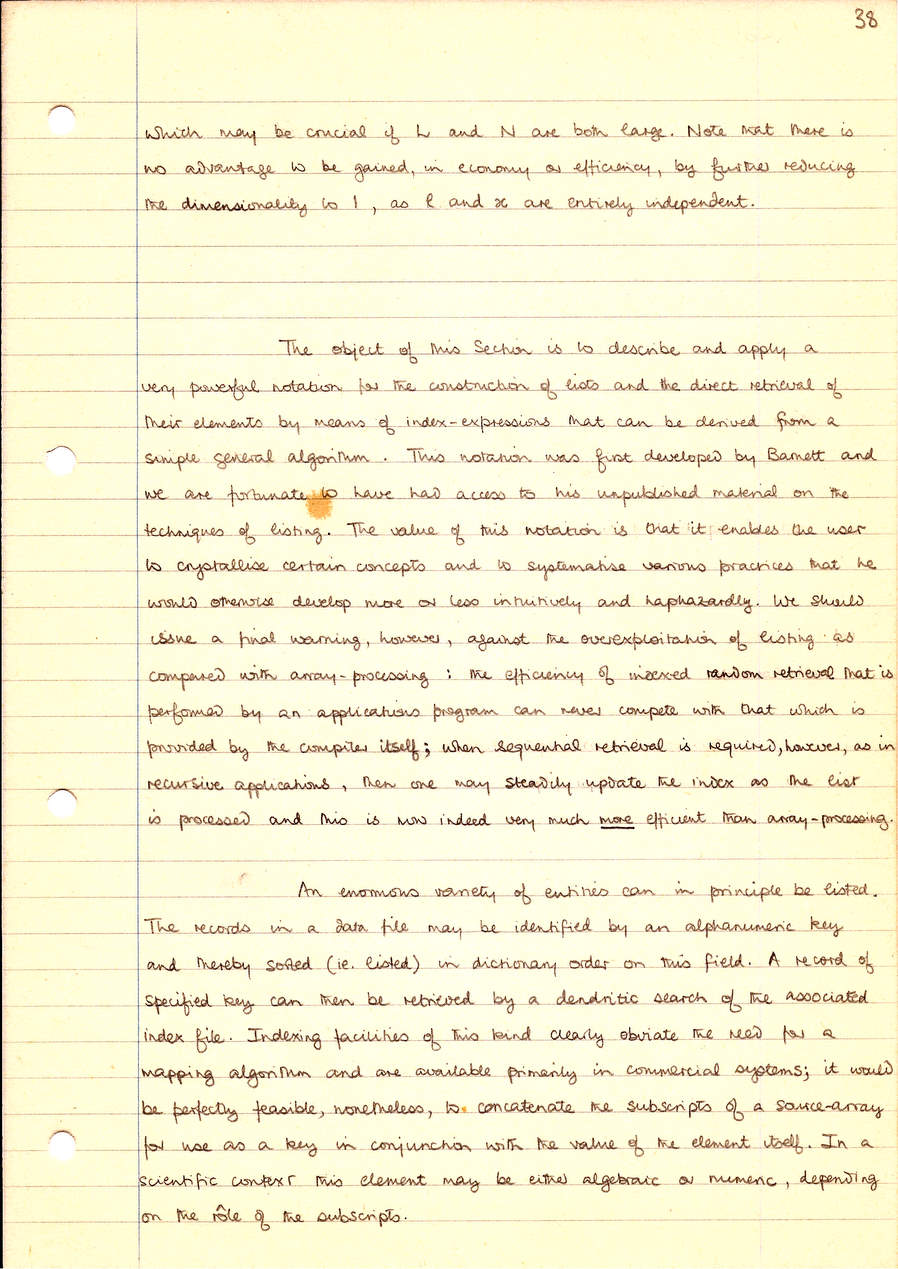 38
which may be crucial if L and N are both large. Note that there is
no advantage to be gained, in economy or efficiency, by further reducing
the dimensionality to 1, as l and x are entirely independent.
The object of this Section is to describe and apply a
very powerful notation for the construction of lists and the direct retrieval of
their elements by means of index-expressions that can be derived from a
simple general algorithm. This notation was first developed by Barnett and
we are fortunate to have had access to his unpublished material on the
techniques of listing. The value of this notation is that it enables the user
to crystallise certain concepts and to systematise various practices that he
would otherwise develop more or less intuitively and haphazardly. We should
issue a final warning, however, against the overexploitation of listing as
compared with array-processing: the efficiency of indexed random retrieval that is
performed by an applications program can never compete with that which is
provided by the compiler itself; when sequential retrieval is required, however, as in
recursive applications, then one may steadily update the index as the list
is processed and this is now indeed very much more efficient than array-processing.
An enormous variety of entities can in principle be listed.
The records in a data file may be identified by an alphanumeric key
and thereby sorted (ie. listed) in dictionary order on this field. A record of
specified key can then be retrieved by a dendritic search of the associated
index file. Indexing facilities of this kind clearly obviate the need for a
mapping algorithm and are available primarily in commercial systems; it would
be perfectly feasible, nonetheless, to concatenate the subscripts of a source-array
for use as a key in conjunction with the value of the element itself. In a
scientific context this element may be either algebraic or numeric, depending
on the rôle of the subscripts.